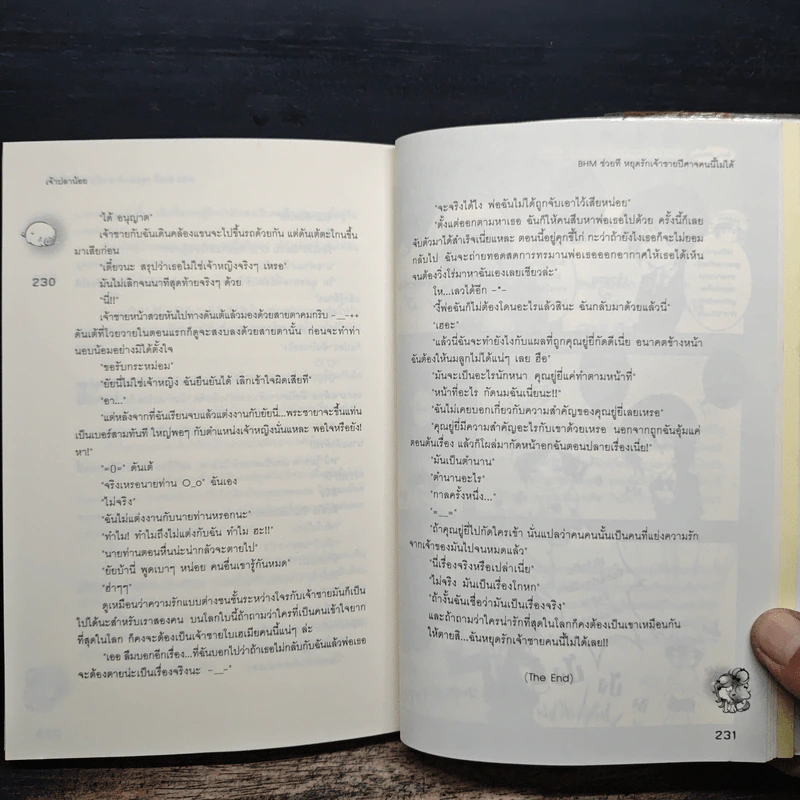 เจ้าปลาน้อย
230
"ได้ อนุญาต"
เจ้าชายกับฉันเดินคล้องแขนจะไปขึ้นรถด้วยกัน แต่ดันเต้ตะโกนขึ้น
มาเสียก่อน
"เดี๋ยวนะ สรุปว่าเธอไม่ใช่เจ้าหญิงจริงๆ เหรอ"
มันไม่เลิกจนนาทีสุดท้ายจริงๆ ด้วย
"นี่!!"
เจ้าชายหน้าสวยหันไปทางดันเต้แล้วมองด้วยสายตาคมกริบ -__-++
ดันเต้ที่โวยวายในตอนแรกก็ดูจะสงบลงด้วยสายตานั้น ก่อนจะทำท่า
นอบน้อมอย่างมิได้ตั้งใจ
"ขอรับกระหม่อม"
"ยัยนี่ไม่ใช่เจ้าหญิง ฉันยืนยันได้ เลิกเข้าใจผิดเสียที"
"อา..."
"แต่หลังจากที่ฉันเรียนจบแล้วแต่งงานกับยัยนี่...พระชายาจะขึ้นแท่น
เป็นเบอร์สามทันที ใหญ่พอๆ กับตำแหน่งเจ้าหญิงนั่นแหละ พอใจหรือยัง!
หา!"
"=0=" ดันเต้
"จริงเหรอนายท่าน O_o" ฉันเอง
"ไม่จริง"
"ฉันไม่แต่งงานกับนายท่านหรอกนะ"
"ทำไม! ทำไมถึงไม่แต่งกับฉัน ทำไม ฮะ!!"
"นายท่านตอนหื่นน่ะน่ากลัวจะตายไป"
"ยัยบ้านี่ พูดเบาๆ หน่อย คนอื่นเขารู้กันหมด"
"ฮ่าๆๆ"
ดูเหมือนว่าความรักแบบต่างชนชั้นระหว่างไพร่กับเจ้าชายมันก็เป็น
ไปได้นะสำหรับเราสองคน บนโลกใบนี้ถ้าถามว่าใครที่เป็นคนเข้าใจยาก
ที่สุดในโลก ก็คงจะต้องเป็นเจ้าชายโบเฮเมียคนนี้แน่ๆ ล่ะ
"เออ ลืมบอกอีกเรื่อง...ที่ฉันบอกไปว่าถ้าเธอไม่กลับกับฉันแล้วพ่อเธอ
จะต้องตายน่ะเป็นเรื่องจริงนะ -__-"
BHM ช่วยที หยุดรักเจ้าชายปีศาจคนนี้ไม่ได้
"จะจริงได้ไง พ่อฉันไม่ได้ถูกจับเอาไว้เสียหน่อย"
"ตั้งแต่ออกตามหาเธอ ฉันก็ให้คนสืบหาพ่อเธอไปด้วย ครั้งนี้ก็เลย
จับตัวมาได้สำเร็จเนี่ยแหละ ตอนนี้อยู่คุกขี้ไก่ กะว่าถ้ายังไงเธอก็จะไม่ยอม
กลับไป ฉันจะถ่ายทอดสดการทรมานพ่อเธอออกอากาศให้เธอได้เห็น
จนต้องวิ่งโร่มาหาฉันเองเลยเชียวล่ะ"
โห...เลวได้อีก -*-
"งี้พ่อฉันก็ไม่ต้องโดนอะไรแล้วสินะ ฉันกลับมาด้วยแล้วนี่"
"เฮอะ"
"แล้วนี่ฉันจะทำยังไงกับแผลที่ถูกคุณยู่ยี่กัดดีเนี่ย อนาคตข้างหน้า
ฉันต้องให้นมลูกไม่ได้แน่ๆ เลย ฮือ"
"มันจะเป็นอะไรนักหนา คุณยู่ยี่แค่ทำตามหน้าที่"
"หน้าที่อะไร กัดนมฉันเนี่ยนะ!!"
"ฉันไม่เคยบอกเกี่ยวกับความสำคัญของคุณยู่ยี่เลยเหรอ"
"คุณยู่ยี่มีความสำคัญอะไรกับเขาด้วยเหรอ นอกจากถูกฉันอุ้มแค่
ตอนต้นเรื่อง แล้วก็โผล่มากัดหน้าอกฉันตอนปลายเรื่องเนี่ย!"
"มันเป็นตำนาน"
"ตำนานอะไร"
"กาลครั้งหนึ่ง..."
"=__="
"ถ้าคุณยู่ยี่ไปกัดใครเข้า นั่นแปลว่าคนคนนั้นเป็นคนที่แย่งความรัก
จากเจ้าของมันไปจนหมดแล้ว"
"นี่เรื่องจริงหรือเปล่าเนี่ย"
"ไม่จริง มันเป็นเรื่องโกหก"
"ถ้างั้นฉันเชื่อว่ามันเป็นเรื่องจริง"
และถ้าถามว่าใครน่ารักที่สุดในโลกก็คงต้องเป็นเขาเหมือนกัน
ให้ตายสิ...ฉันหยุดรักเจ้าชายคนนี้ไม่ได้เลย!!
(The End)
231